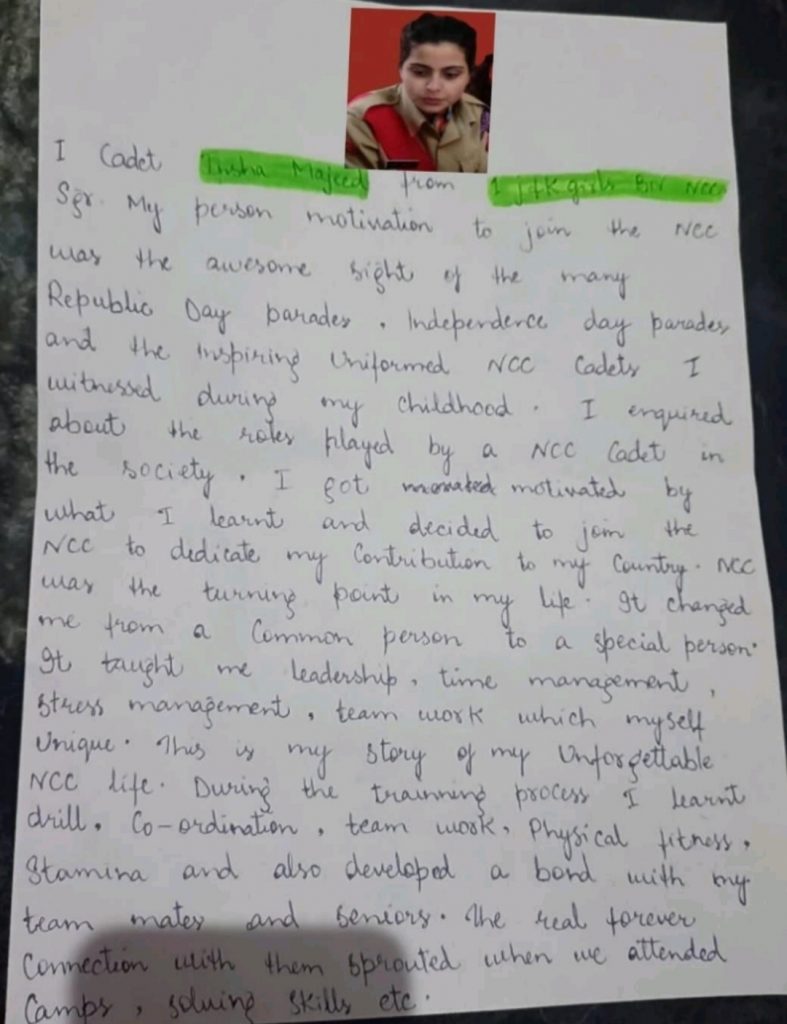 I Cadet Insha Majeed from 1 J&K girls BN NCC
Sgr. My person motivation to join the NCC
was the awesome sight of the many
Republic Day parades, Independence day parades
and the Inspiring Uniformed NCC Cadets I
witnessed during my childhood. I enquired
about the roles played by a NCC Cadet in
the society. I got motivated by
what I learnt and decided to join the
NCC to dedicate my Contribution to my Country. NCC
was the turning point in my life. It changed
me from a Common person to a special person.
It taught me leadership, time management,
Stress management, team work which myself
Unique. This is my story of my Unforgettable
NCC life. During the trainning process I learnt
drill, Co-ordination, team work, Physical fitness,
Stamina and also developed a bond with my
team mates and Seniors. The real forever
Connection with them sprouted when we attended
Camps, solving skills etc.